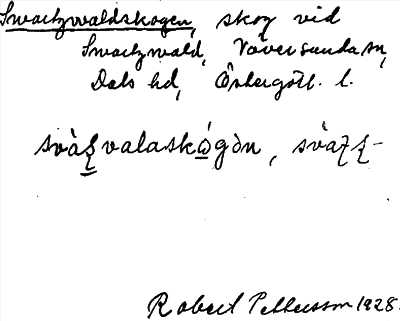 Swartzwaldskogen, skog vid
Swartzwald, Väversunda sn,
Dals hd, Östergötl. l.
svàʂvalaskó̱gən, svàʈʂ-
Robert Pettersson 1928.